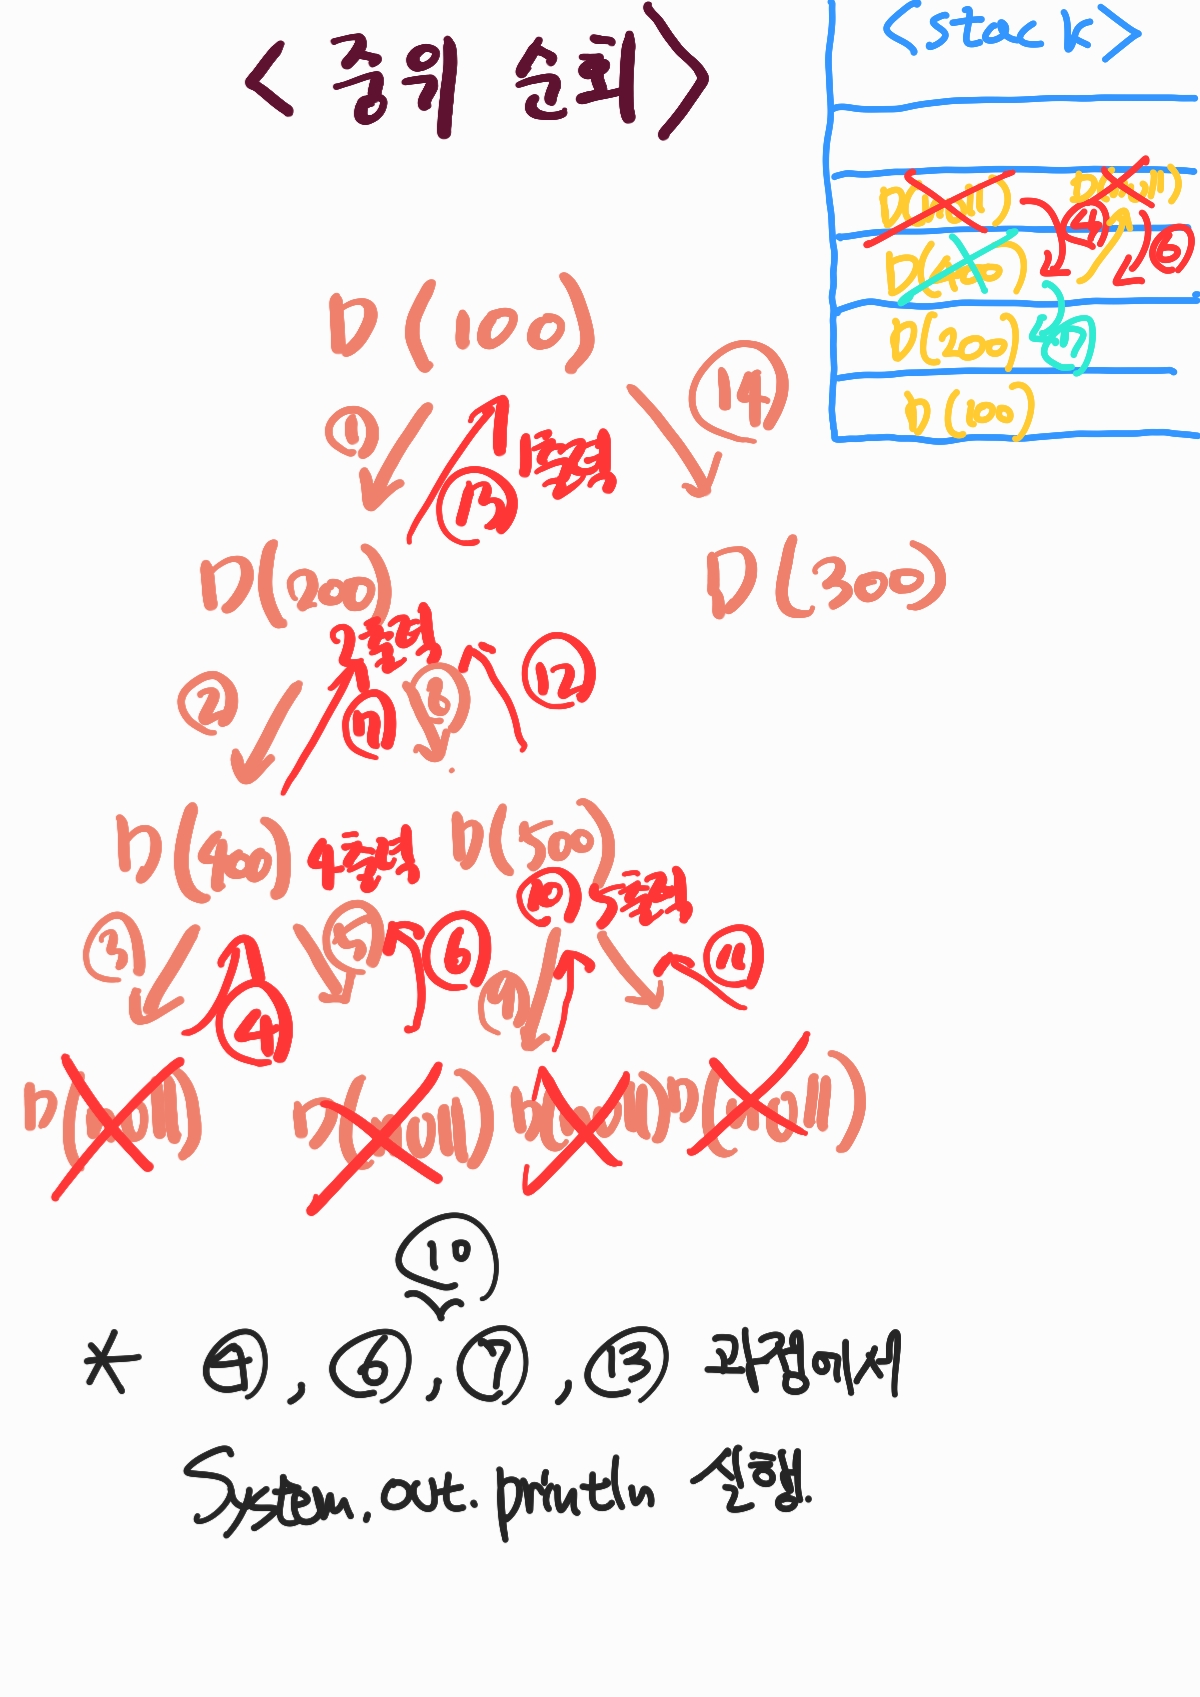 <중위 순회>
<stack>
D(null) D(null)
④ ⑥
D(400)
D(200) ⑦
D(100)
D(100)
① ⑬ 1출력 ⑭
D(200) D(300)
2출력
② ⑦ ⑧ ⑫
D(400) 4출력 D(500)
⑩ 5출력
③ ④ ⑤ ⑥ ⑨ ⑪
D(null) D(null) D(null) D(null)
⑩
* ④, ⑥, ⑦, ⑬ 과정에서
System.out.println 실행.